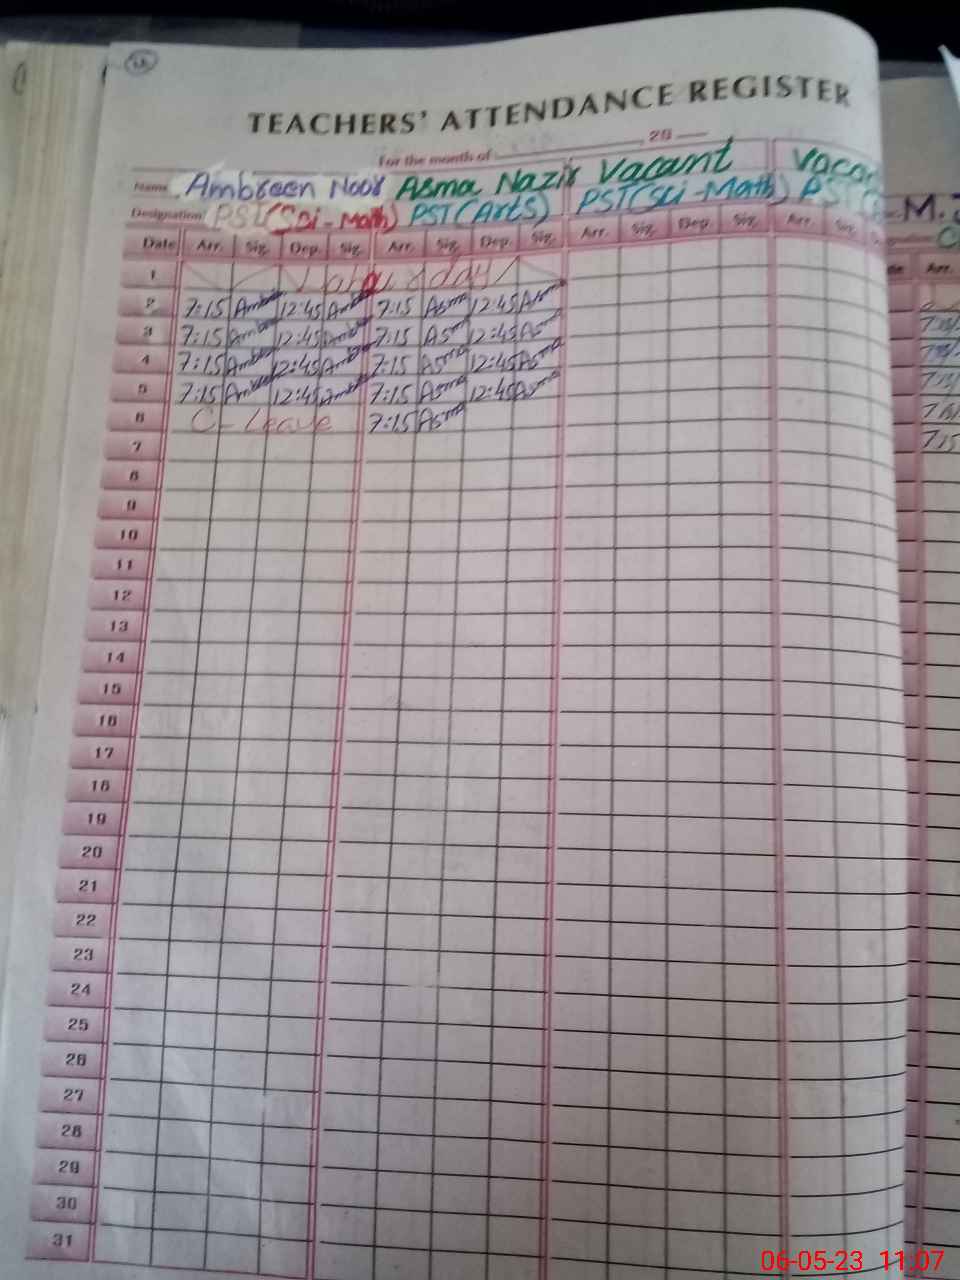 TEACHERS' ATTENDANCE REGISTER
For the month of 20
Name Ambreen Noor Asma Nazir Vacant
Designation PST(Sci-Math) PST(Arts) PST(Sci-Math) PST
Date Arr. Sig. Dep. Sig. Arr. Sig. Dep. Sig. Arr. Sig. Dep. Sig. Arr. Sig. Arr.
1 Labour day
2 7:15 12:45 7:15 Asma 12:45 Asma
3 7:15 12:45 7:15 Asma 12:45 Asma
4 7:15 12:45 7:15 Asma 12:45 Asma
5 7:15 12:45 7:15 Asma 12:45 Asma
6 C-Leave 7:15 Asma
7
8
9
10
11
12
13
14
15
16
17
18
19
20
21
22
23
24
25
26
27
28
29
30
31
06-05-23 11:07